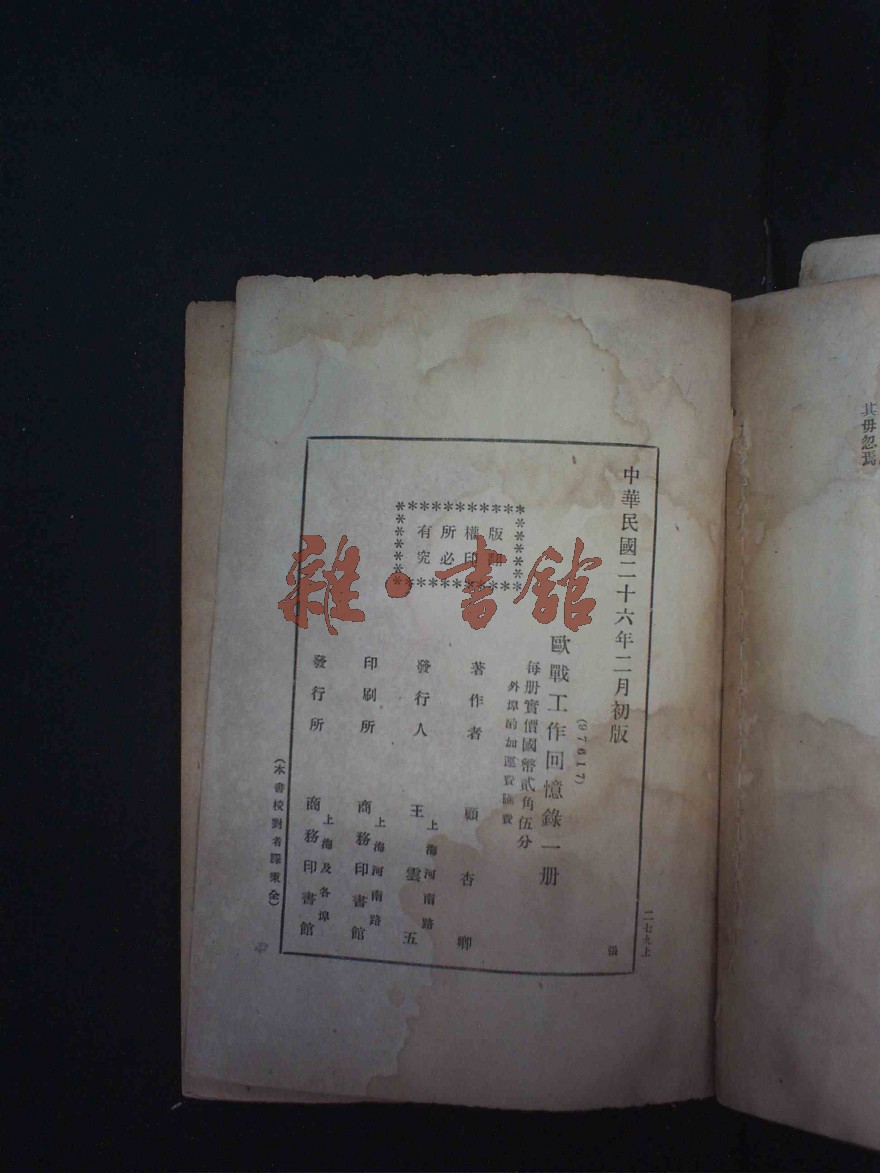 其毋忽焉
中華民國二十六年二月初版
二七九上
張
(97617)
歐戰工作回憶錄一册
每册實價國幣貳角伍分
外埠酌加運費匯費
版權所有
翻印必究
著作者 顧杏卿
發行人 王雲五
上海河南路
印刷所 商務印書館
上海河南路
發行所 商務印書館
上海及各埠
(本書校對者譚秉全)
雜·書館